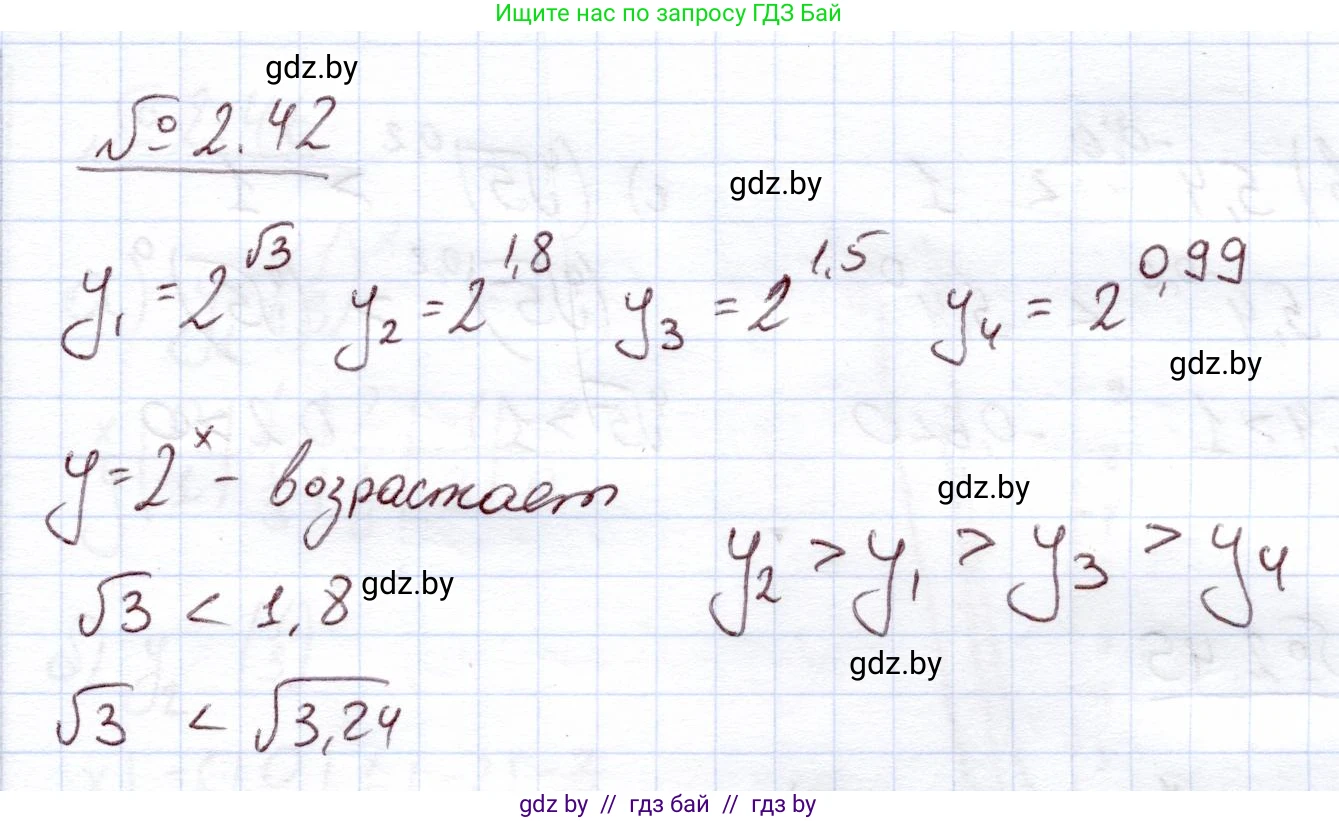 Ищите нас по запросу ГДЗ Бай
gdz.by
№ 2.42
gdz.by
y₁ = 2^√3 y₂ = 2^1,8 y₃ = 2^1,5 y₄ = 2^0,99
gdz.by
y = 2^x - возрастает
gdz.by
y₂ > y₁ > y₃ > y₄
√3 < 1,8
gdz.by
gdz.by
√3 < √3,24
gdz by // гдз бай // гдз by